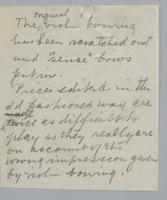 original
The violin bowing
has been scratched out
and "sense" bows
put in.
Pieces edited in the
old fashioned way are
made
twice as difficult to
play as they really are
on account of the
wrong impression given
by violin bowing.